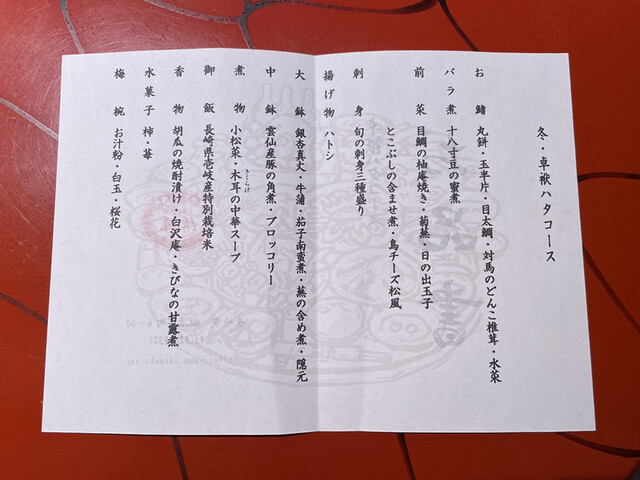 冬・卓袱ハタコース
お鰭 丸餅・玉半片・目太鯛・対馬のどんこ椎茸・水菜
バラ煮 十八寸豆の蜜煮
前菜 目鯛の柚庵焼き・菊蕪・日の出玉子
とこぶしの含ませ煮・鳥チーズ松風
刺身 旬の刺身三種盛り
揚げ物 ハトシ
大鉢 銀杏真丈・牛蒲・茄子南蜜煮・蕪の含め煮・隠元
中鉢 雲仙産豚の角煮・ブロッコリー
煮物 小松菜・木耳の中華スープ
きくらげ
御飯 長崎県壱岐産特別栽培米
香物 胡瓜の焼酎漬け・白沢庵・きびなの甘露煮
水菓子 柿・苺
梅椀 お汁粉・白玉・桜花